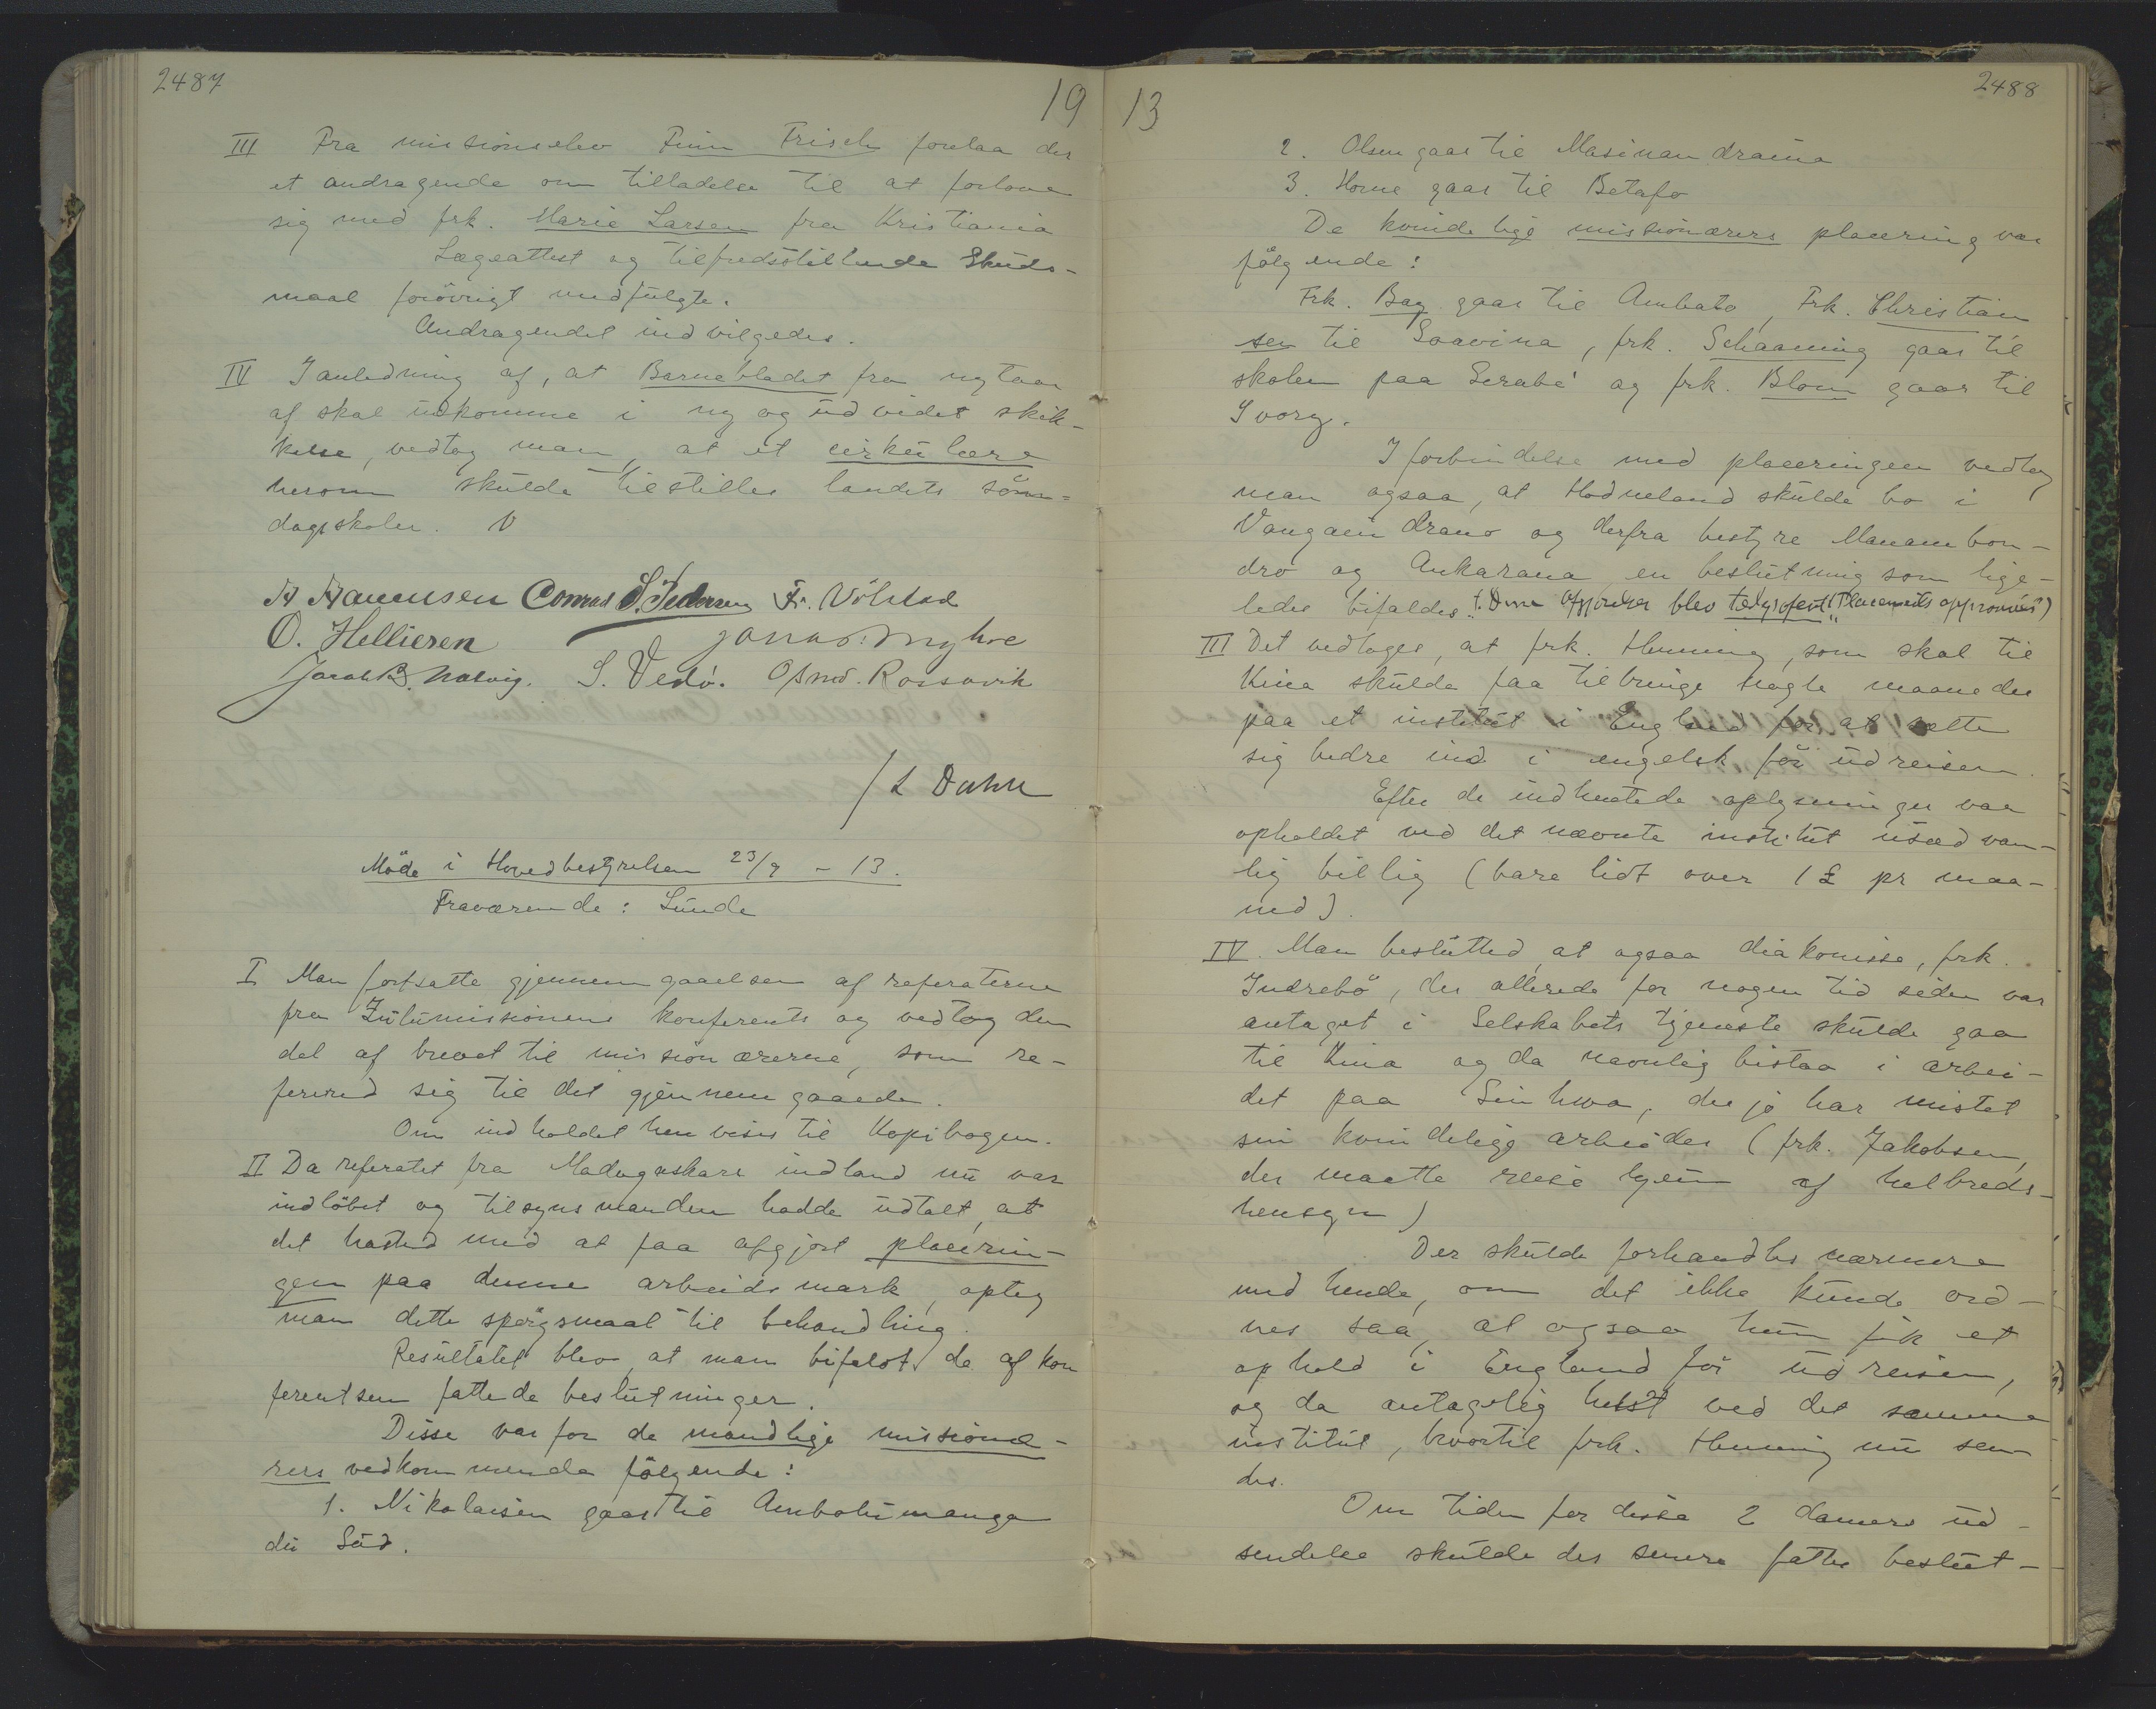 2487
19
III Fra missionselev Finn Frisch forelaa der
et andragende om tilladelse til at forlove
sig med frk. Marie Larsen fra Kristiania
Lægeattest og tilfredsstillende Skuds-
maal forövrigt medfulgte.
Andragendet indvilgedes.
IV I anledning af, at Barnebladet fra nytaar
af skal udkomme i ny og udvidet skik-
kelse, vedtog man, at et cirkulære
herom skulde tilstilles landets sön-
dagsskoler. V
Conrad S. Pedersen Fr. Völstad
O. Hellieren
S. Vedö.
L Dahle
Möde i Hovedbestyrelsen 23/9 - 13.
Fraværende: Lunde
I Man fortsatte gjennemgaaelsen af referaterne
fra Zulumissionens konferents og vedtog den
del af brevet til missionærerne, som re-
ferered sig til det gjennemgaaede.
Om indholdet henvises til Kopibogen.
II Da referatet fra Madagaskars indland nu var
indlöbet og tilsynsmanden hadde udtalt, at
det hasted med at faa afgjort placerin-
gen paa denne arbeidsmark, optog
man dette spörgsmaal til behandling.
Resultatet blev, at man bifaldt de af kon
ferentsen fattede beslutninger.
Disse var for de mandlige missionæ-
rers vedkommende fölgende:
1. Nikolaisen gaar til Ambohimanga
du Süd.
13
2488
2. Olsen gaar til Masinandraina
3. Horne gaar til Betafo
De kvindelige missionærers placering var
fölgende:
Frk. Bag gaar til Ambato, Frk. Christian
sen til Soavina, frk. Schaaning gaar til
skolen paa Serabe og frk. Blom gaar til
Ivory.
I forbindelse med placeringen vedtog
man ogsaa, at Hodneland skulde bo i
Vangaindrano og derfra bestyre Manambon-
dro og Ankarana, en beslutning som lige-
ledes bifaldes. Denne afgjörelse blev telegrafert ("Placements approuvés")
III Det vedtoges, at frk. Henning, som skal til
Kina skulde faa tilbringe nogle maaneder
paa et institut i England for at sætte
sig bedre ind i engelsk för udreisen.
Efter de indhentede oplysninger var
opholdet ved det nævnte institut usædvan-
lig billig (bare lidt over 1 £ pr maa-
ned).
IV. Man beslutted, at ogsaa diakonisse, frk.
Indrebö, der allerede for nogen tid siden var
antaget i Selskabets tjeneste skulde gaa
til Kina og da navnlig bistaa i arbei-
det paa Sinhwa, der jo har mistet
sin kvindelige arbeider (frk. Jakobsen,
der maatte reise hjem af helbreds-
hensyn)
Der skulde forhandles nærmere
med hende, om det ikke kunde ord-
nes saa, at ogsaa hun fik et
ophold i England för udreisen,
og da antagelig helst ved det samme
institut, hvortil frk. Henning nu sen-
des.
Om tiden for disse 2 damers ud-
sendelse skulde der senere fattes beslut-